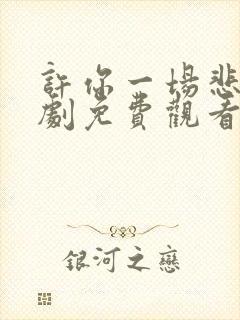 許你一場悲
劇免費觀看
銀河之戀